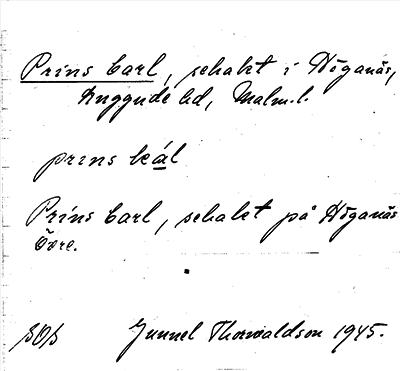 Prins Carl, schakt i Höganäs,
Luggude hd, Malm.l.
prins kál
Prins Carl, schakt på Höganäs
Övre.
SOS Gunnel Thorwaldson 1945.